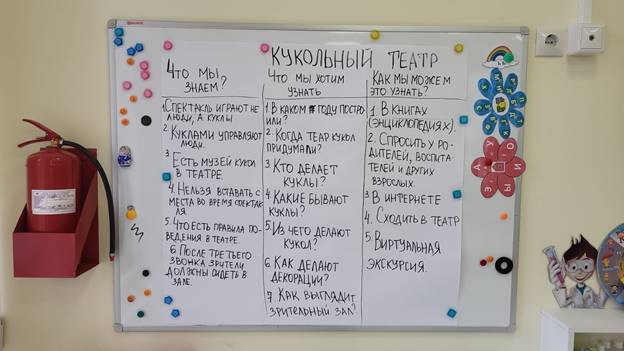 КУКОЛЬНЫЙ ТЕАТР
ЧТО МЫ
ЗНАЕМ?
1. СПЕКТАКЛЬ ИГРАЮТ НЕ
ЛЮДИ, А КУКЛЫ
2. КУКЛАМИ УПРАВЛЯЮТ
ЛЮДИ.
3. ЕСТЬ МУЗЕЙ КУКОЛ
В ТЕАТРЕ.
4. НЕЛЬЗЯ ВСТАВАТЬ С
МЕСТА ВО ВРЕМЯ СПЕКТАК
ЛЯ.
5. ЧТО ЕСТЬ ПРАВИЛА ПО-
ВЕДЕНИЯ В ТЕАТРЕ.
6. ПОСЛЕ ТРЕТЬЕГО
ЗВОНКА ЗРИТЕЛИ
ДОЛЖНЫ СИДЕТЬ В
ЗАЛЕ.
ЧТО МЫ ХОТИМ
УЗНАТЬ
1. В КАКОМ ГОДУ ПОСТРО
ИЛИ?
2. КОГДА ТЕАР КУКОЛ
ПРИДУМАЛИ?
3. КТО ДЕЛАЕТ
КУКЛЫ?
4. КАКИЕ БЫВАЮТ
КУКЛЫ?
5. ИЗ ЧЕГО ДЕЛАЮТ
КУКОЛ?
6. КАК ДЕЛАЮТ
ДЕКОРАЦИИ?
7. КАК ВЫГЛЯДИТ
ЗРИТЕЛЬНЫЙ ЗАЛ?
КАК МЫ МОЖЕМ
ЭТО УЗНАТЬ?
1. В КНИГАХ
(ЭНЦИКЛОПЕДИЯХ).
2. СПРОСИТЬ У РО
ДИТЕЛЕЙ, ВОСПИТА
ТЕЛЕЙ И ДРУГИХ
ВЗРОСЛЫХ.
3. В ИНТЕРНЕТЕ
4. СХОДИТЬ В ТЕАТР
5. ВИРТУАЛЬНАЯ
ЭКСКУРСИЯ.